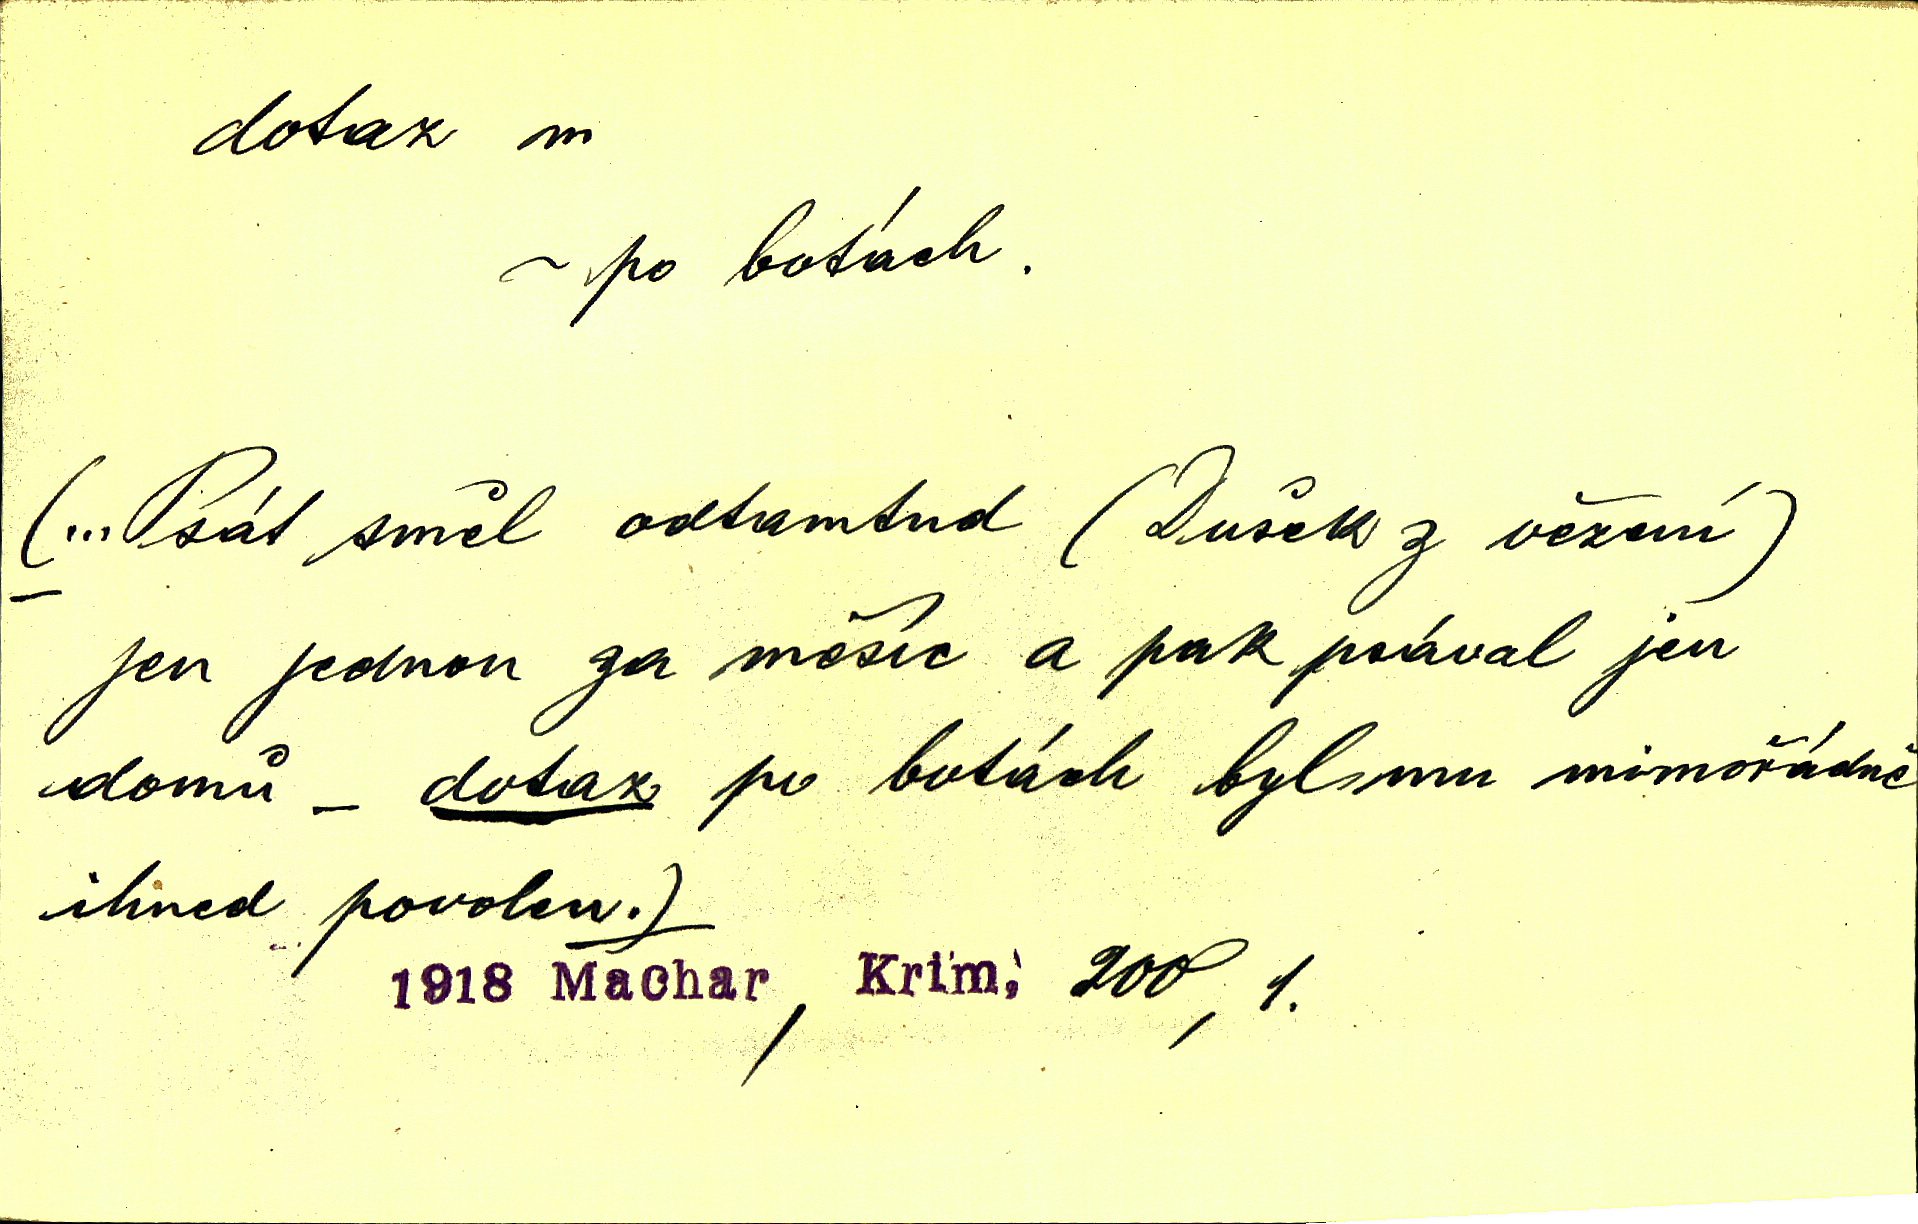 dotaz m
~ po botách.
(... Psát směl odtamtud (Dušek z vězení)
jen jednou za měsíc a pak psával jen
domů – dotaz po botách byl mu mimořádně
ihned povolen.)
1918 Machar, Krim; 200, 1.